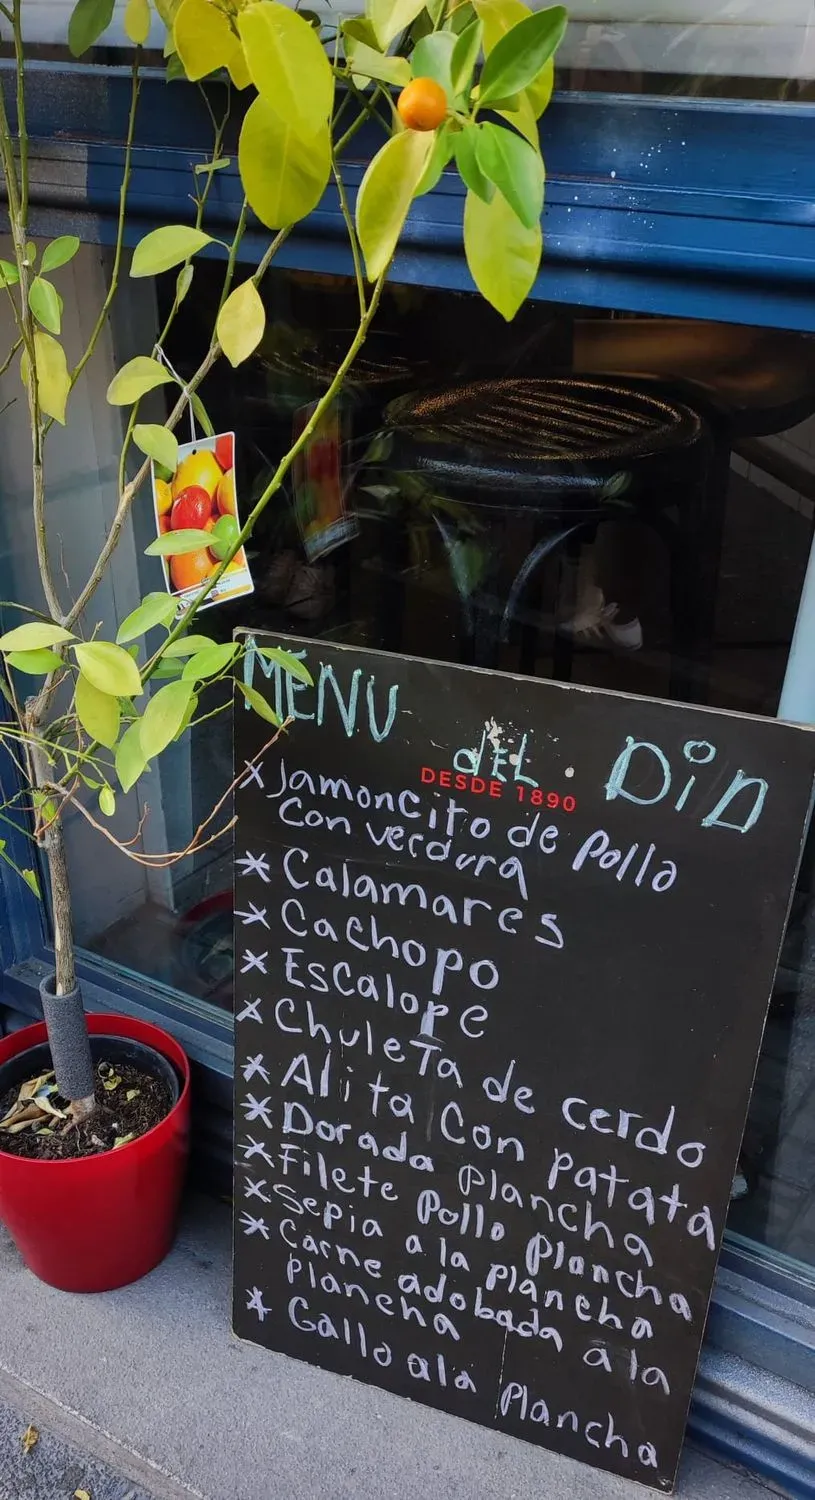 MENU del DiA
DESDE 1890
* Jamoncito de pollo
con verdura
* Calamares
* Cachopo
* Escalope
* Chuleta de cerdo
* Alita con patata
* Dorada plancha
* Filete pollo plancha
* Sepia a la plancha
* Carne adobada a la
plancha
* Gallo a la plancha